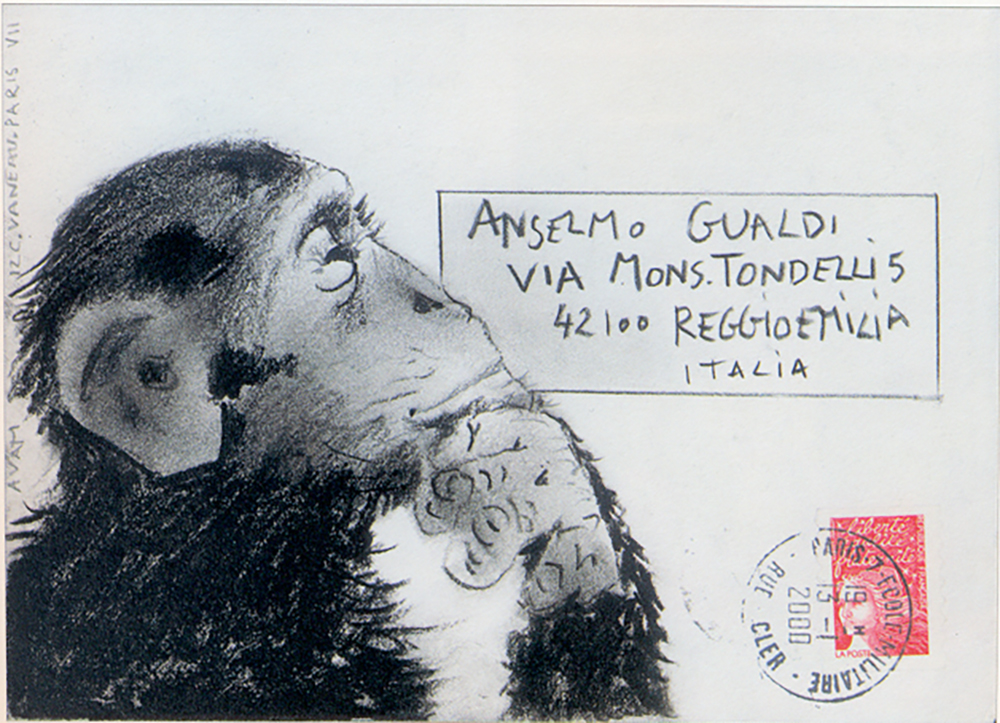 ANSELMO GUALDI
VIA MONS. TONDELLI 5
42100 REGGIO EMILIA
ITALIA
12 C. VANEAU. PARIS VII
liberté
LA POSTE
PARIS 7 - ECOLE MILITAIRE
RUE CLER
19 H
13 - 1
2000